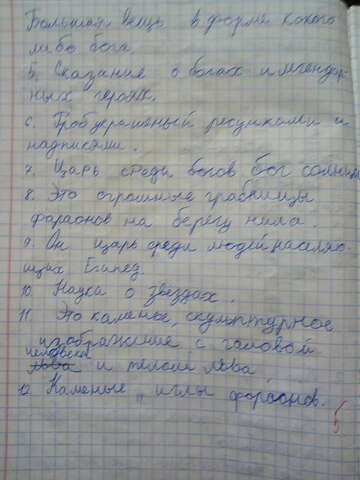 Большая вещь в форме какого
либо бога.
5. Сказание о богах и легендар
ных героях.
6. Гроб украшеный рисунками и
надписями.
7. Царь среди богов бог солнца
8. Это огромные гробницы
фараонов на берегу нила.
9. Он царь среди людей населяю
щих Египед.
10. Наука о звездах.
11. Это каменое, скумптурное
изображение с головой
человека
льва и телом льва
12. Каменые „ иглы фараонов.
5